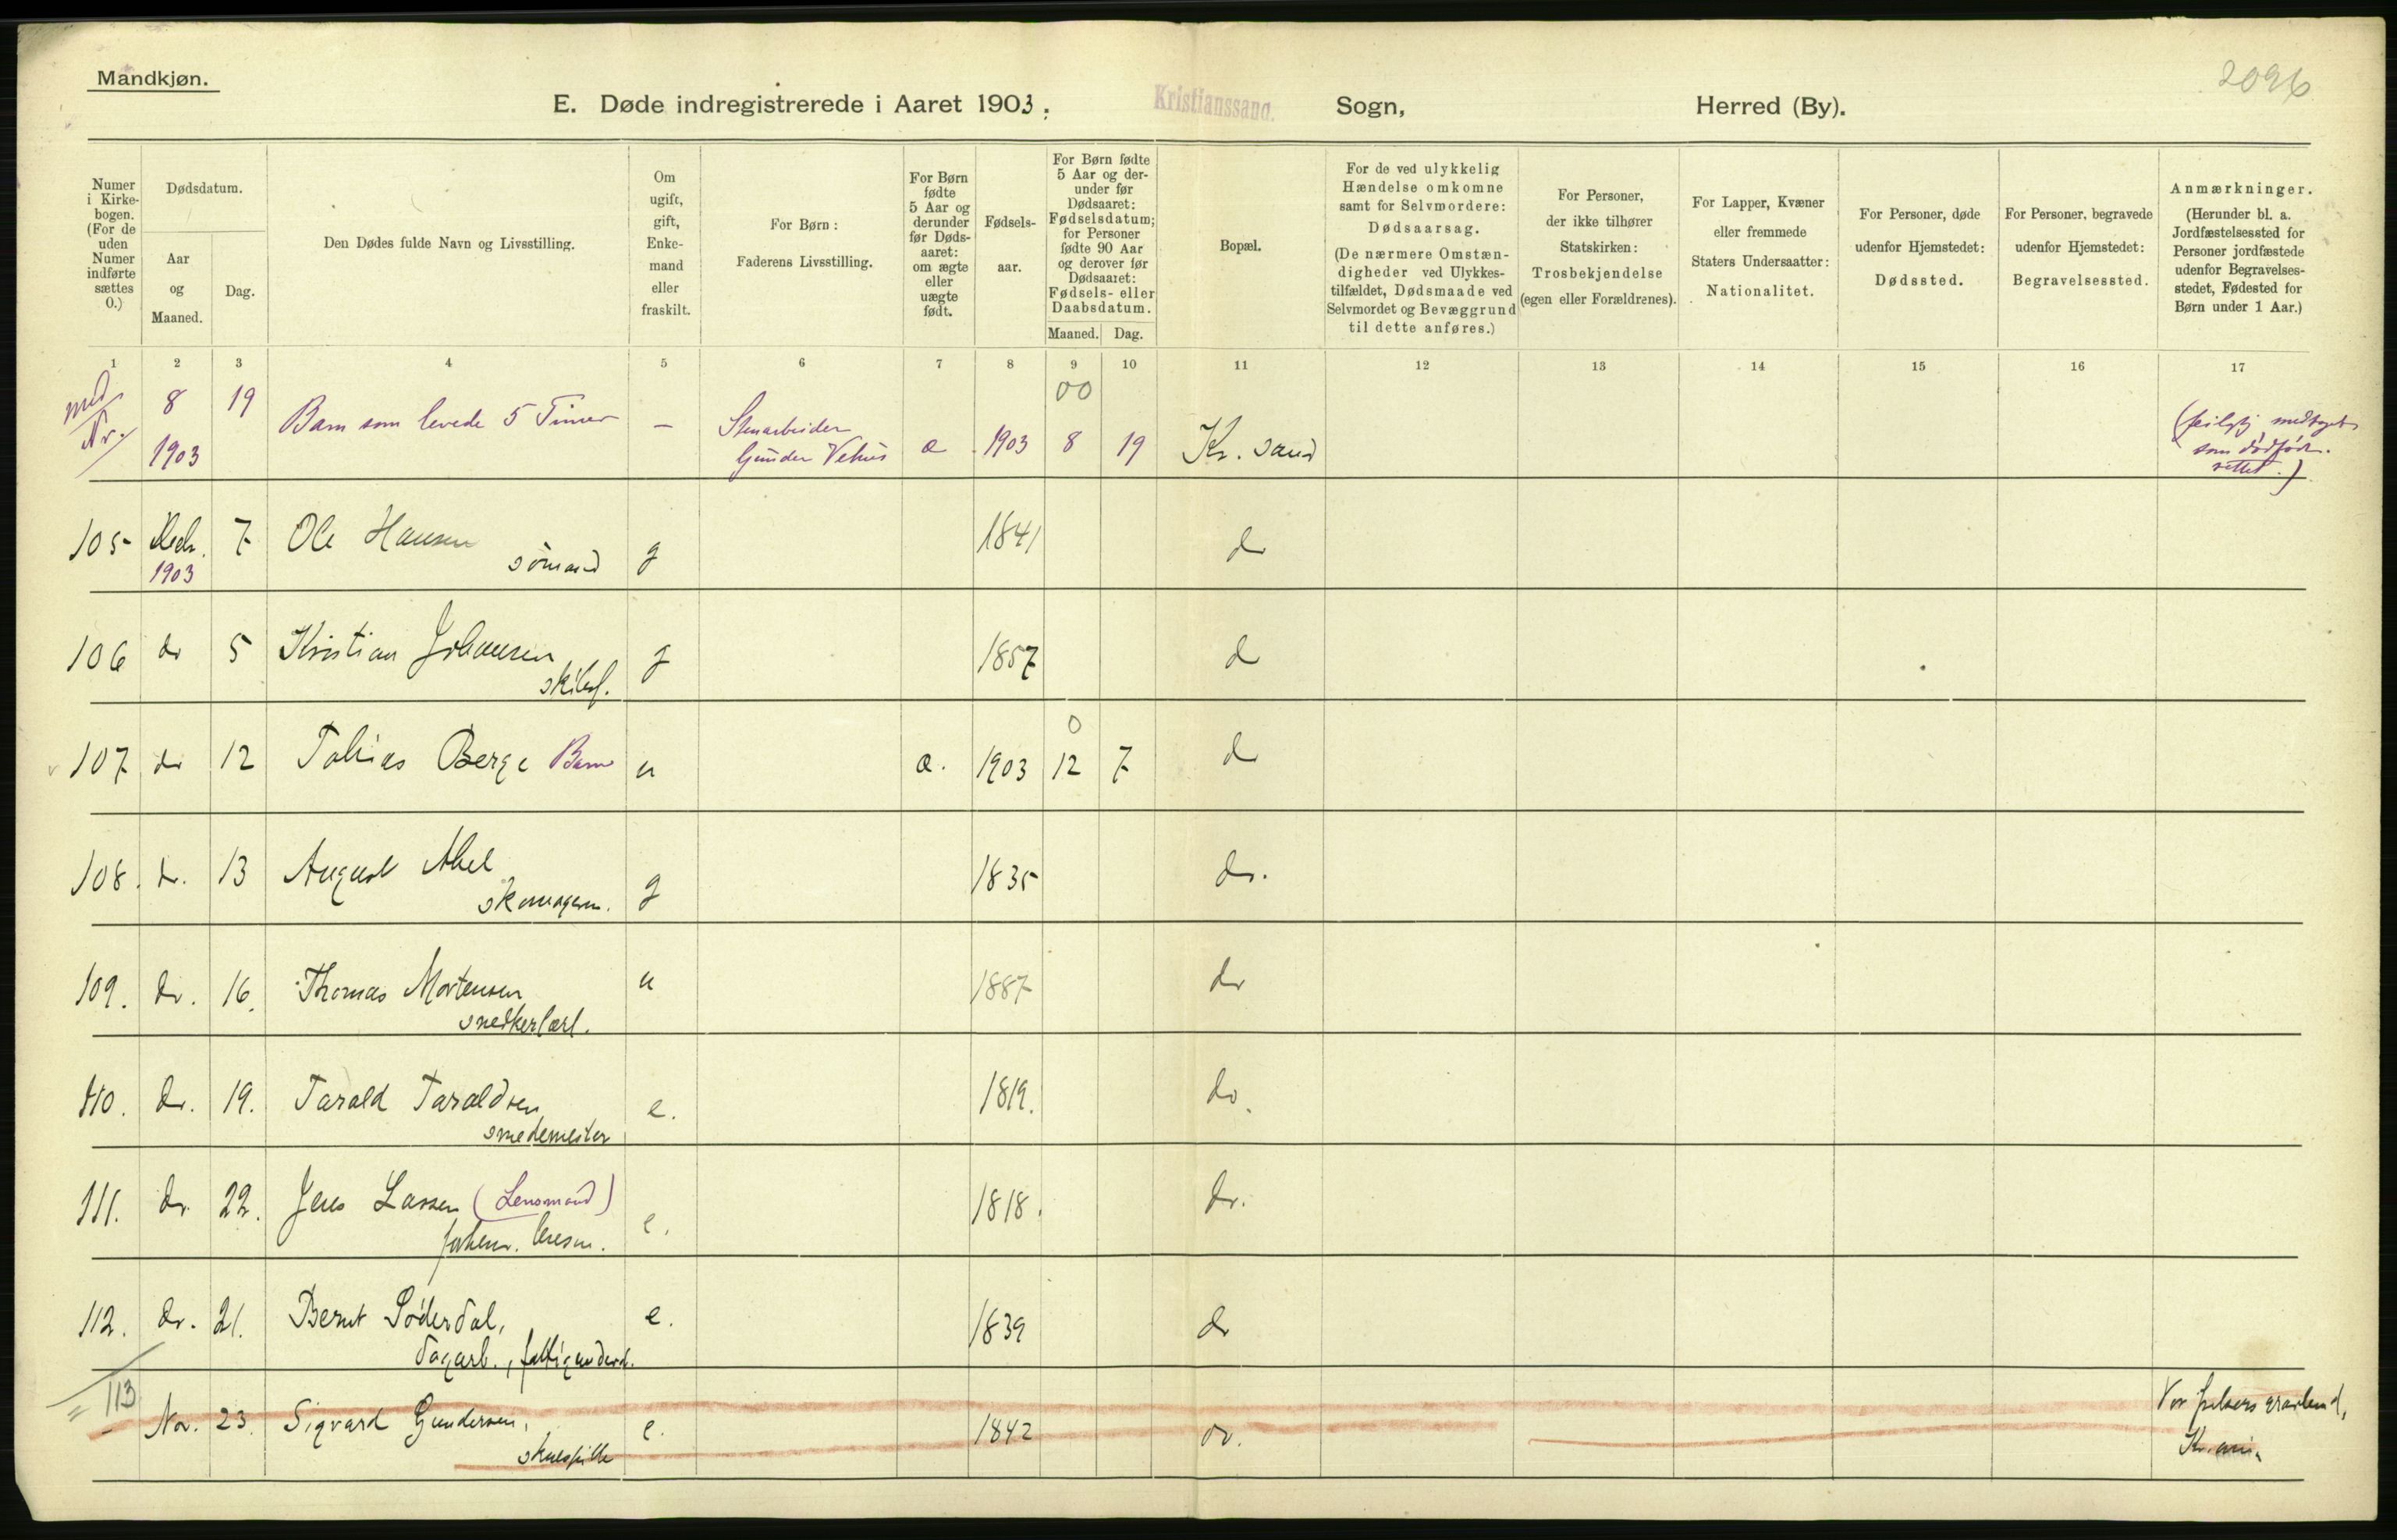 Mandkjøn.
2096
E. Døde indregistrerede i Aaret 1903. Kristianssand. Sogn, Herred (By).
Numer i Kirkebogen. (For de uden Numer indførte sættes 0.)
Dødsdatum.
Aar og Maaned.
Dag.
Den Dødes fulde Navn og Livsstilling.
Om ugift, gift, Enkemand eller fraskilt.
For Børn: Faderens Livsstilling.
For Børn fødte 5 Aar og derunder før Dødsaaret: om ægte eller uægte født.
Fødselsaar.
For Børn fødte 5 Aar og derunder før Dødsaaret: Fødselsdatum; for Personer fødte 90 Aar og derover før Dødsaaret: Fødsels- eller Daabsdatum.
Maaned. Dag.
Bopæl.
For de ved ulykkelig Hændelse omkomne samt for Selvmordere: Dødsaarsag. (De nærmere Omstændigheder ved Ulykkestilfældet, Dødsmaade ved Selvmordet og Bevæggrund til dette anføres.)
For Personer, der ikke tilhører Statskirken: Trosbekjendelse (egen eller Forældrenes).
For Lapper, Kvæner eller fremmede Staters Undersaatter: Nationalitet.
For Personer, døde udenfor Hjemstedet: Dødssted.
For Personer, begravede udenfor Hjemstedet: Begravelsessted.
Anmærkninger. (Herunder bl. a. Jordfæstelsessted for Personer jordfæstede udenfor Begravelsesstedet, Fødested for Børn under 1 Aar.)
1 2 3 4 5 6 7 8 9 10 11 12 13 14 15 16 17
00
Nr. 8 1903 19 Barn som levede 5 Timer — Stenarbeider Gunder Vehus æ 1903 8 19 Kr. sand (feilagtig medtaget som dødfødt. rettet.)
105 Decb. 1903 7 Ole Hansen sömand g 1841 do
106 do 5 Kristian Johansen skibsf. g 1857 do
0
107 do 12 Tobias Berge Barn u æ. 1903 12 7 do
108. do. 13 August Abel skomagerm. g 1835 do.
109. do. 16. Thomas Mortensen snedkerlærl. u 1887 do
110. do. 19. Tarald Taraldsen smedemester e. 1819. do.
111. do. 22. Jens Lassen (Lensmand) forhenv. lensm. e. 1818. do.
112. do. 21. Bernt Söderdal, dagarb., fattigunderst. e. 1839 do
113 - Nov. 23. Sigvard Gundersen, skuespiller e. 1842 do. Vor frelsers gravlund, Kr.ania.